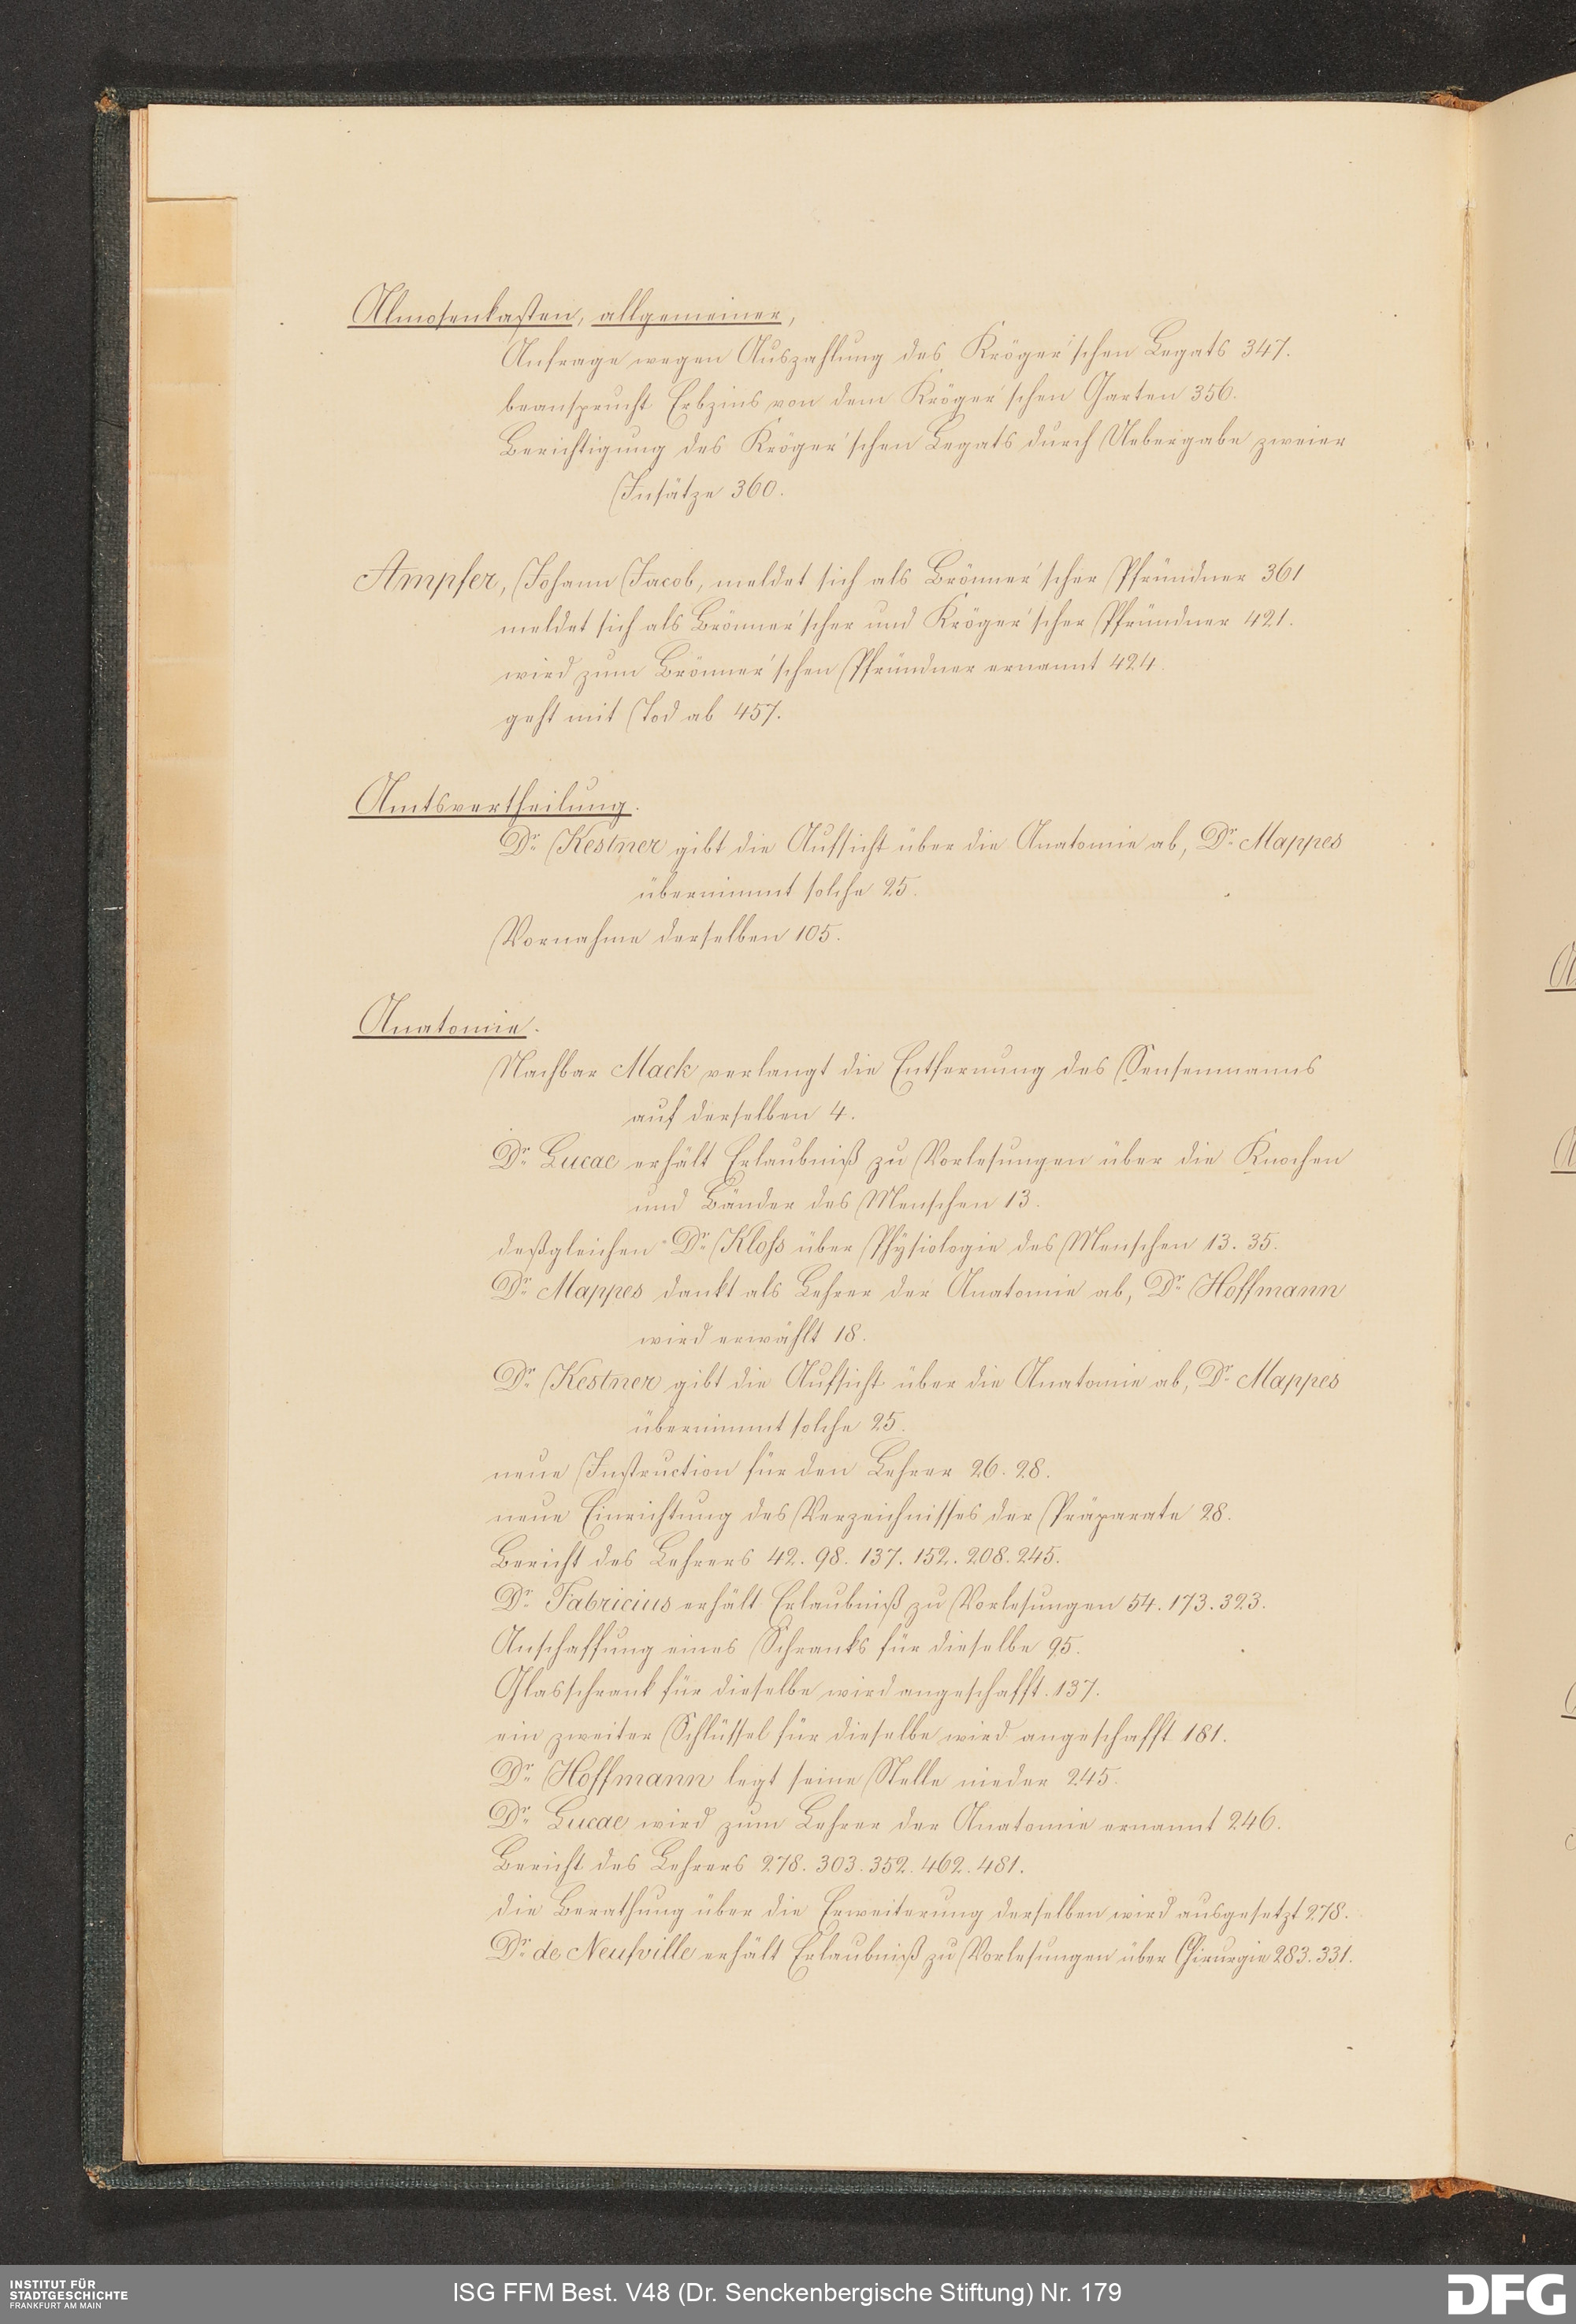 Almosenkasten, allgemeiner,
Anfrage wegen Auszahlung des Kröger'schen Legats 347.
beansprucht Erbzins von dem Kröger'schen Garten 356.
Berichtigung des Kröger'schen Legats durch Uebergabe zweier
Insätze 360.
Ampfer, Johann Jacob, meldet sich als Brönner'scher Pfründner 361
meldet sich als Brönner'scher und Kröger'scher Pfründner 421.
wird zum Brönner'schen Pfründner ernannt 424.
geht mit Tod ab 457.
Amtsvertheilung.
Dr. Kestner gibt die Aufsicht über die Anatomie ab, Dr. Mappes
übernimmt solche 25.
Vornahme derselben 105.
Anatomie.
Nachbar Mack verlangt die Entfernung des Sensenmanns
auf derselben 4.
Dr. Lucae erhält Erlaubniß zu Vorlesungen über die Knochen
und Bänder des Menschen 13.
deßgleichen Dr. Kloß über Physiologie des Menschen 13. 35.
Dr. Mappes dankt als Lehrer der Anatomie ab, Dr. Hoffmann
wird erwählt 18.
Dr. Kestner gibt die Aufsicht über die Anatomie ab, Dr. Mappes
übernimmt solche 25.
neue Instruction für den Lehrer 26. 28.
neue Einrichtung des Verzeichnisses der Präparate 28.
Bericht des Lehrers 42. 98. 137. 152. 208. 245.
Dr. Fabricius erhält Erlaubniß zu Vorlesungen 54. 173. 323.
Anschaffung eines Schranks für dieselbe 95.
Glasschrank für dieselbe wird angeschafft. 137.
ein zweiter Schlüssel für dieselbe wird angeschafft 181.
Dr. Hoffmann legt seine Stelle nieder 245.
Dr. Lucae wird zum Lehrer der Anatomie ernannt 246.
Bericht des Lehrers 278. 303. 352. 462. 481.
die Berathung über die Erweiterung derselben wird ausgesetzt 278.
Dr. de Neufville erhält Erlaubniß zu Vorlesungen über Chirurgie 283. 331.
INSTITUT FÜR
STADTGESCHICHTE
FRANKFURT AM MAIN
ISG FFM Best. V48 (Dr. Senckenbergische Stiftung) Nr. 179
DFG